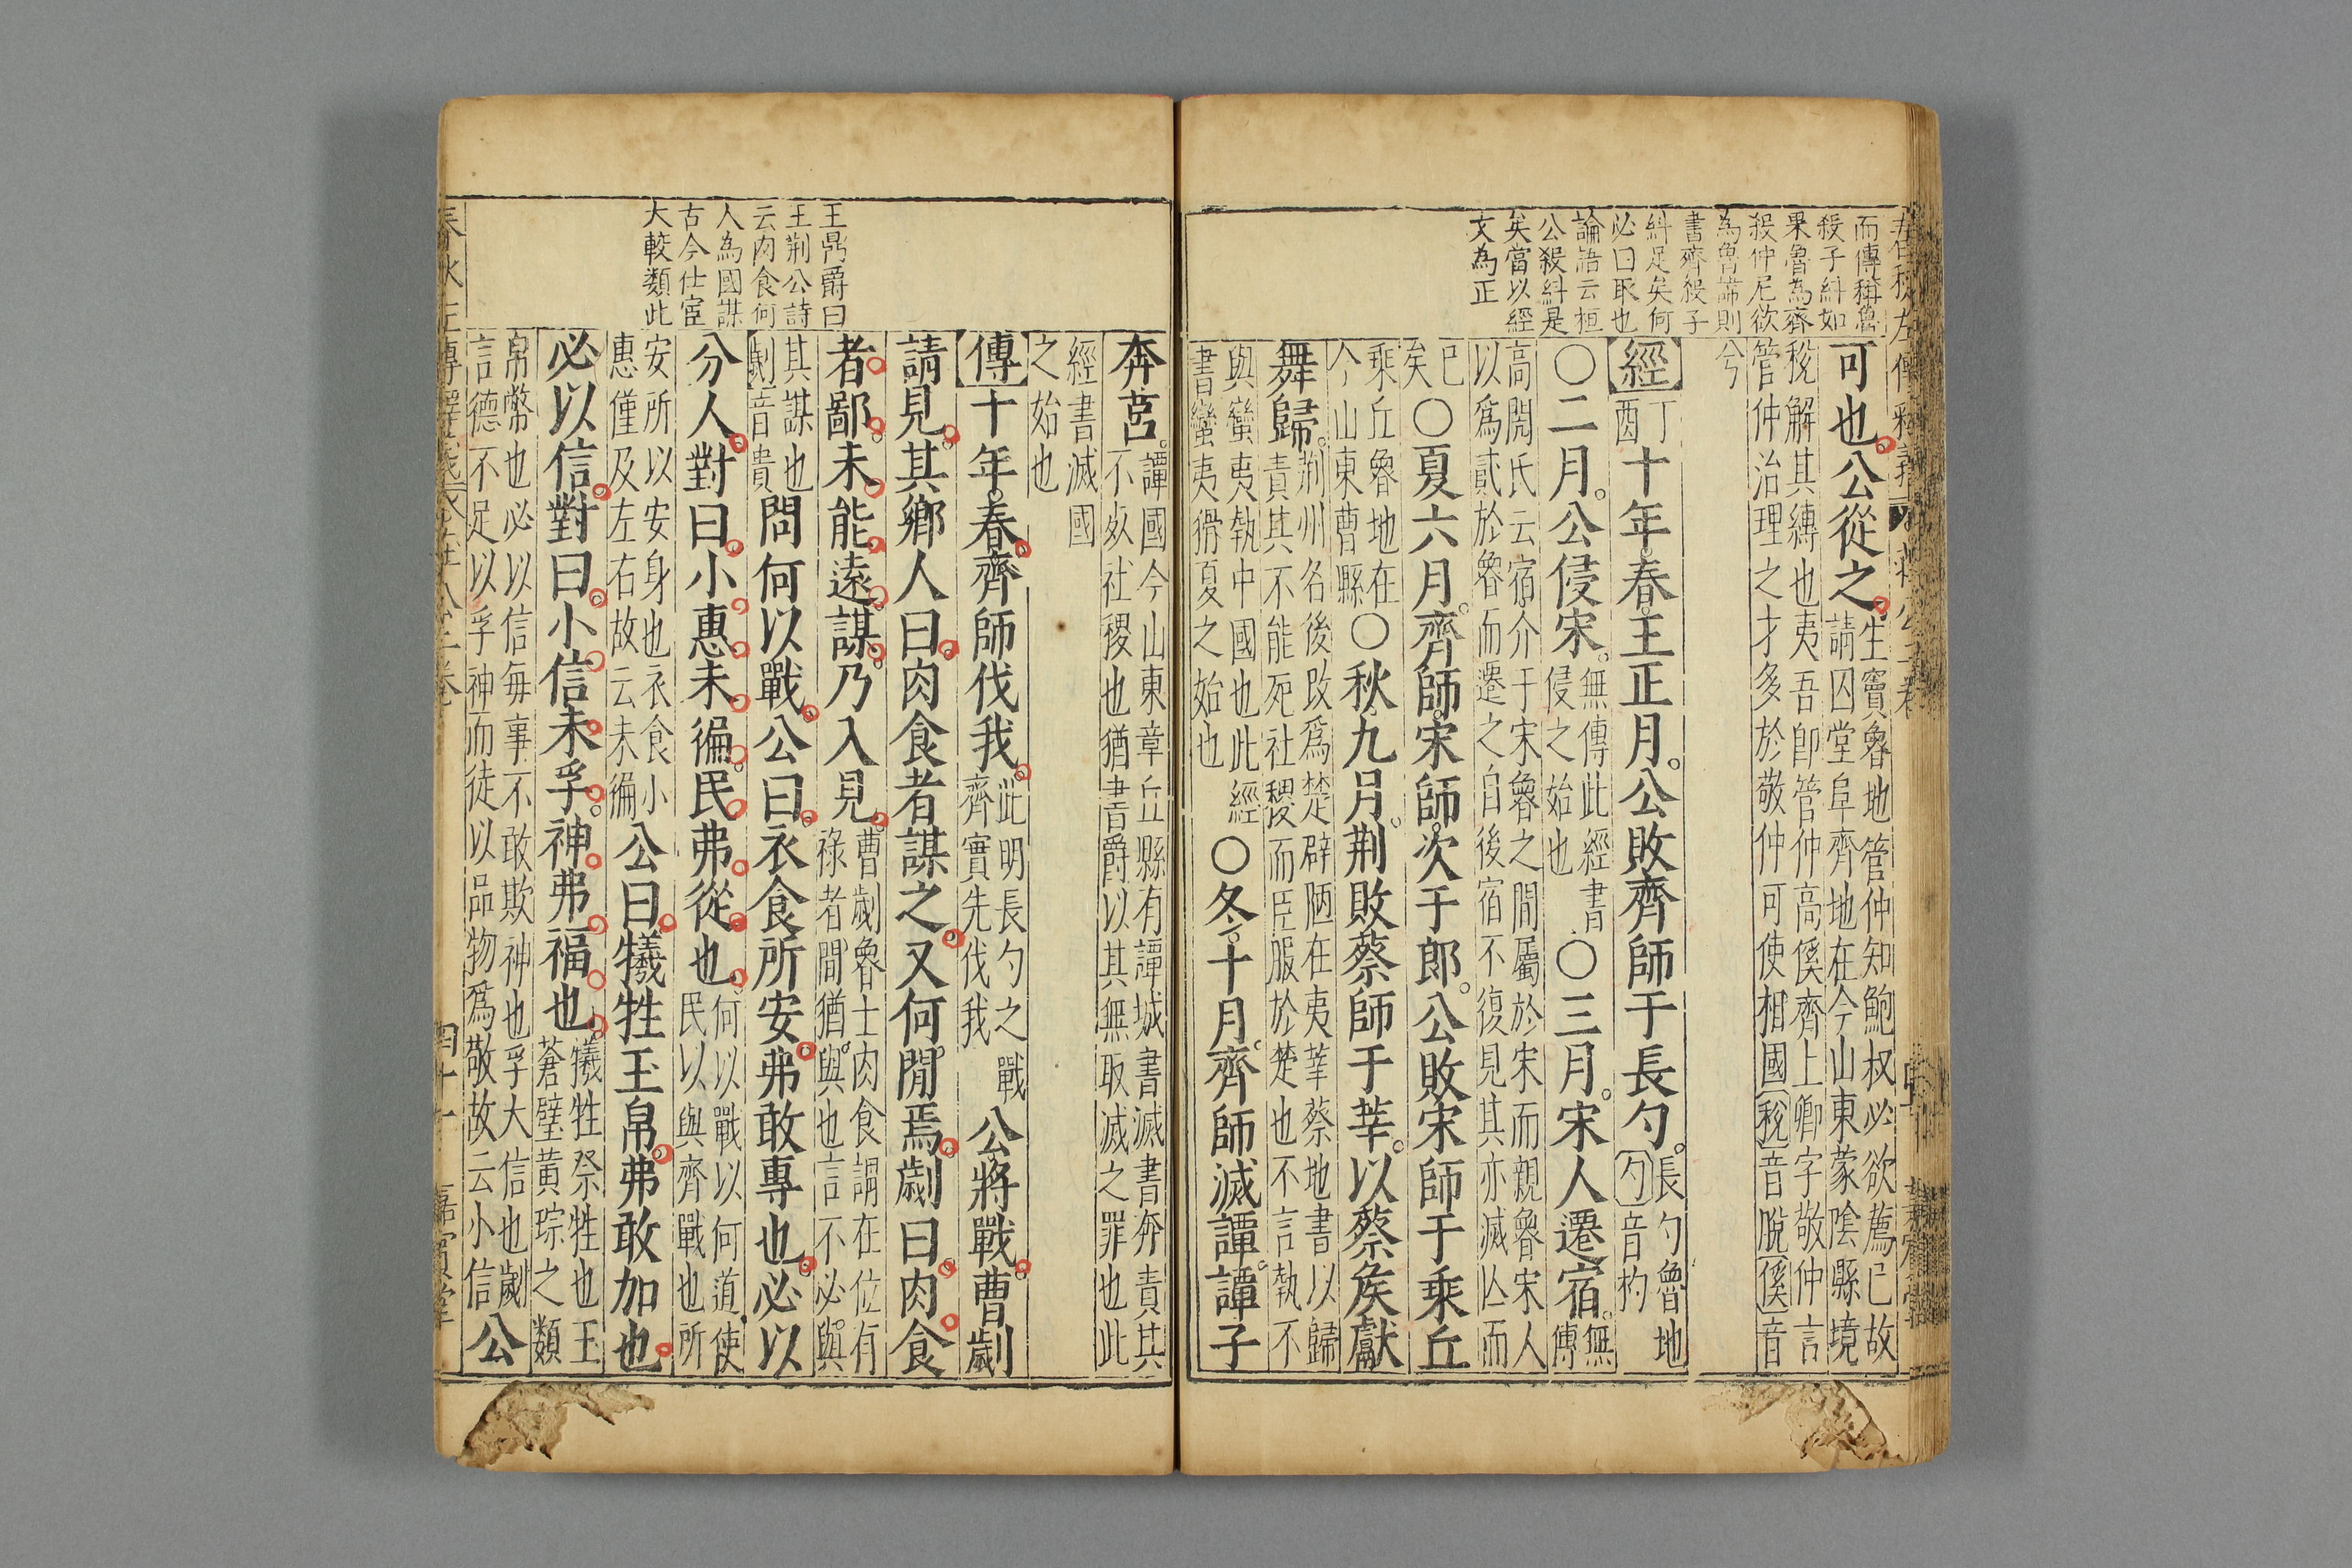 而傳稱魯
殺子糾如
果魯為齊
殺仲尼欲
為魯諱則
書齊殺子
糾足矣何
必曰取也
論語云桓
公殺糾是
矣當以經
文為正
可也。公從之。生竇魯地管仲知鮑叔必欲薦已故請囚堂阜齊地在今山東蒙陰縣境
稅解其縳也夷吾卽管仲高傒齊上卿字敬仲言管仲治理之才多於敬仲可使相國稅音脫傒音
兮
經丁酉十年。春。王正月。公敗齊師于長勺。長勺魯地勺音杓
〇二月。公侵宋。無傳此經書侵之始也〇三月。宋人遷宿。無傳
高閌氏云宿介于宋魯之間屬於宋而親魯宋人以爲貳於魯而遷之自後宿不復見其亦滅亾而
已矣〇夏六月。齊師。宋師。次于郎。公敗宋師于乘丘
乘丘魯地在今山東曹縣〇秋。九月。荆敗蔡師于莘。以蔡矦獻
舞歸。荆州名後改爲楚辟陋在夷莘蔡地書以歸責其不能死社稷而臣服於楚也不言執不
與蠻夷執中國也此經書蠻夷猾夏之始也〇冬。十月。齊師滅譚。譚子
王鼎爵曰
王荆公詩
云肉食何
人為國謀
古今仕宦
大較類此
奔莒。譚國今山東章丘縣有譚城書滅書奔責其不死社稷也猶書爵以其無取滅之罪也此
經書滅國之始也
傳十年。春。齊師伐我。此明長勺之戰齊實先伐我公將戰。曹劌
請見。其鄉人曰。肉食者謀之。又何閒焉。劌曰。肉食
者鄙。未能遠謀。乃入見。曹劌魯士肉食謂在位有祿者閒猶與也言不必與
其謀也劌音貴問何以戰。公曰。衣食所安。弗敢專也。必以
分人。對曰。小惠未徧。民弗從也。何以戰以何道使民以與齊戰也所
安所以安身也衣食小惠僅及左右故云未徧公曰。犧牲玉帛。弗敢加也。
必以信。對曰。小信未孚。神弗福也。犧牲祭牲也玉蒼璧黃琮之類
帛幣也必以信毎事不敢欺神也孚大信也劌言德不足以孚神而徒以品物爲敬故云小信公